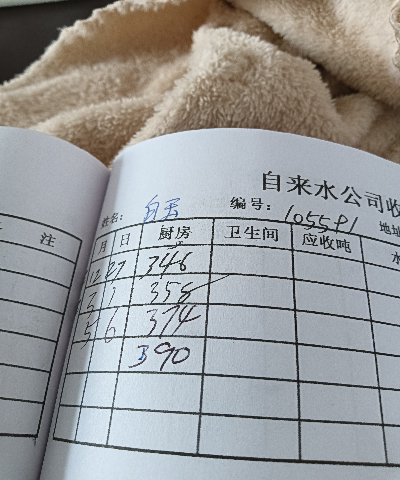 注
自来水公司收
姓名: 编号: 105591 地址
月 日 厨房 卫生间 应收吨 水
12 27 346
3 1 358
5 6 374
390